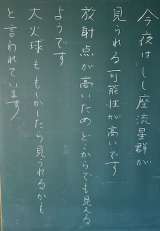 今夜はしし座流星群が
見られる可能性が高いです
放射点が高いためどこからでも見える
ようです
大火球ももしかしたら見られるかも
と言われています!